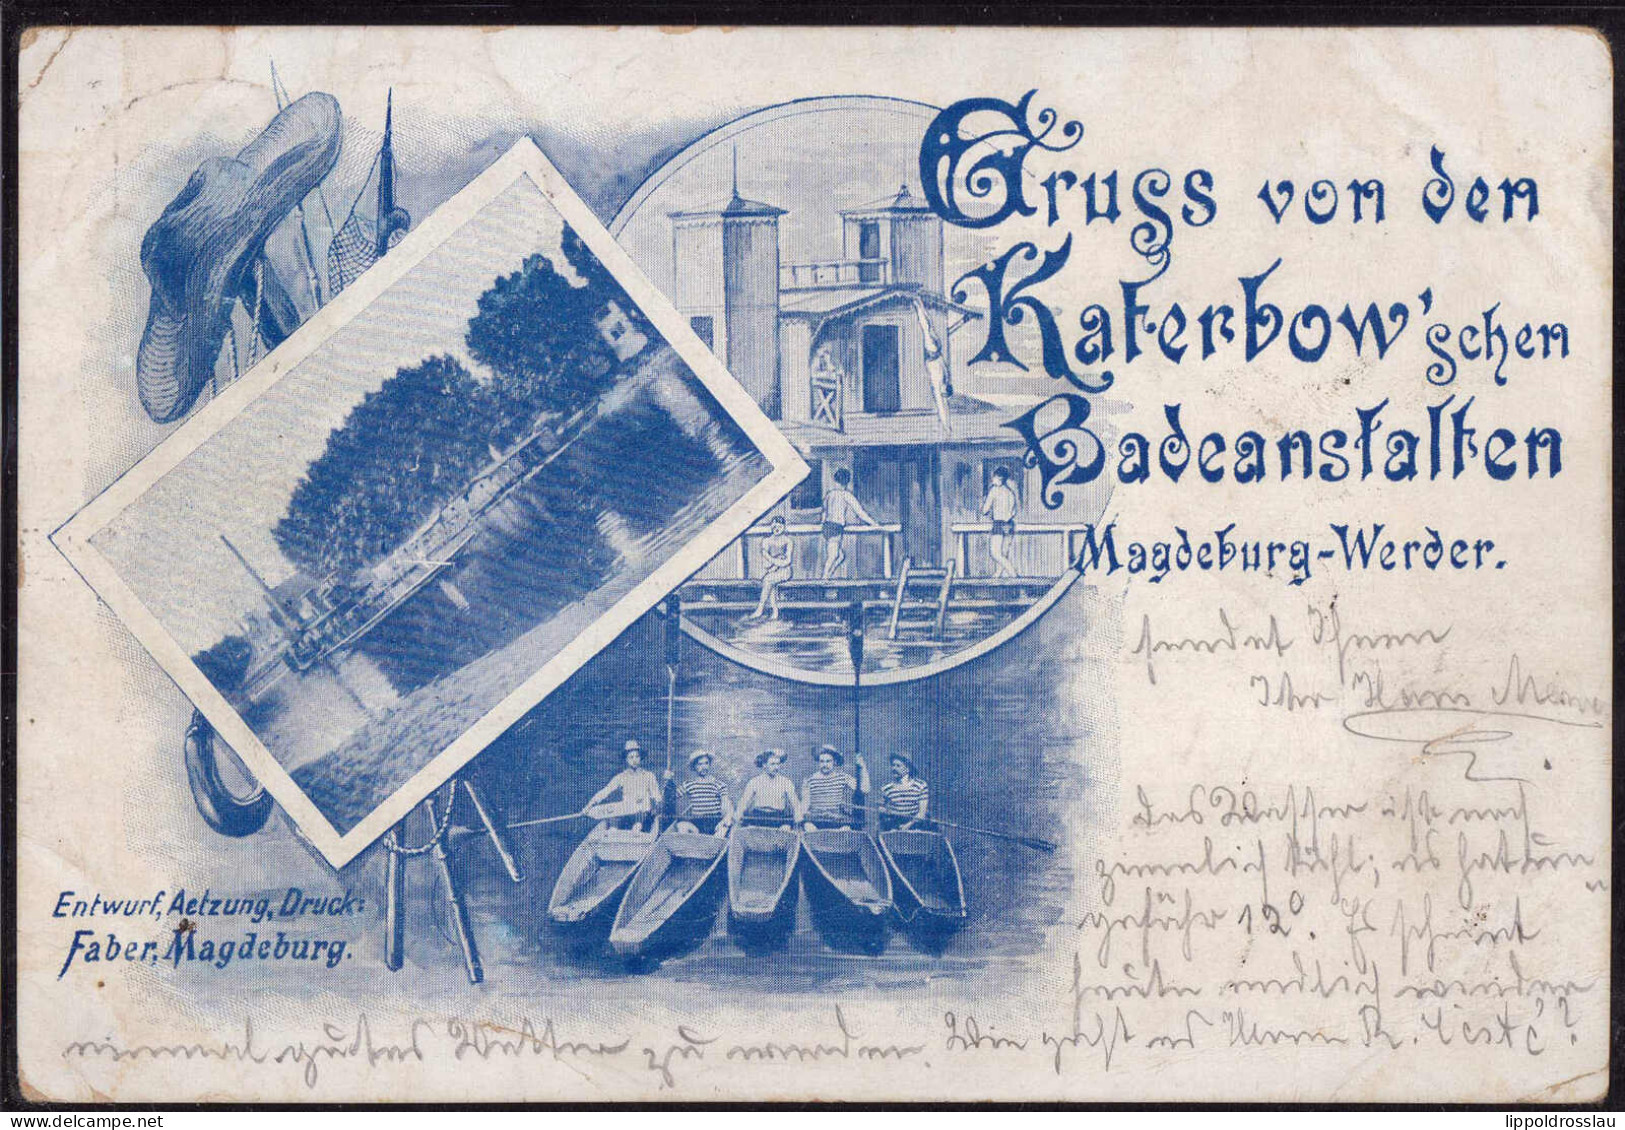 Gruss von den
Katerbow'schen
Badeanstalten
Magdeburg-Werder.
sendet Ihnen
Ihr Hans
Das Wasser ist noch
ziemlich kühl; es hat un-
gefähr 12°. Es scheint
heute endlich wieder
einmal gutes Wetter zu werden. Wie geht es Herrn R.
Entwurf, Aetzung, Druck:
Faber, Magdeburg.
lippoldrosslau